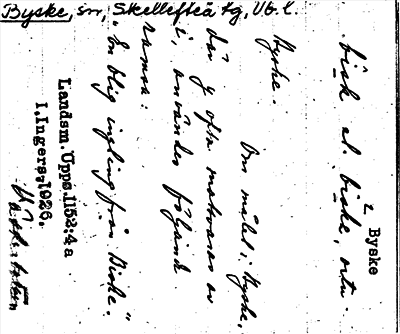 Byske, sn, Skellefteå tg, Vb. l.
Byske
bisk el. biske, ortn.
Byske.
Om målet i Byske,
där y ofta motsvaras av
i, användes följande
ramsa:
"En blig yngling från Biske."
Landsm. Upps. 1152:4 a
I. Ingers, 1926.